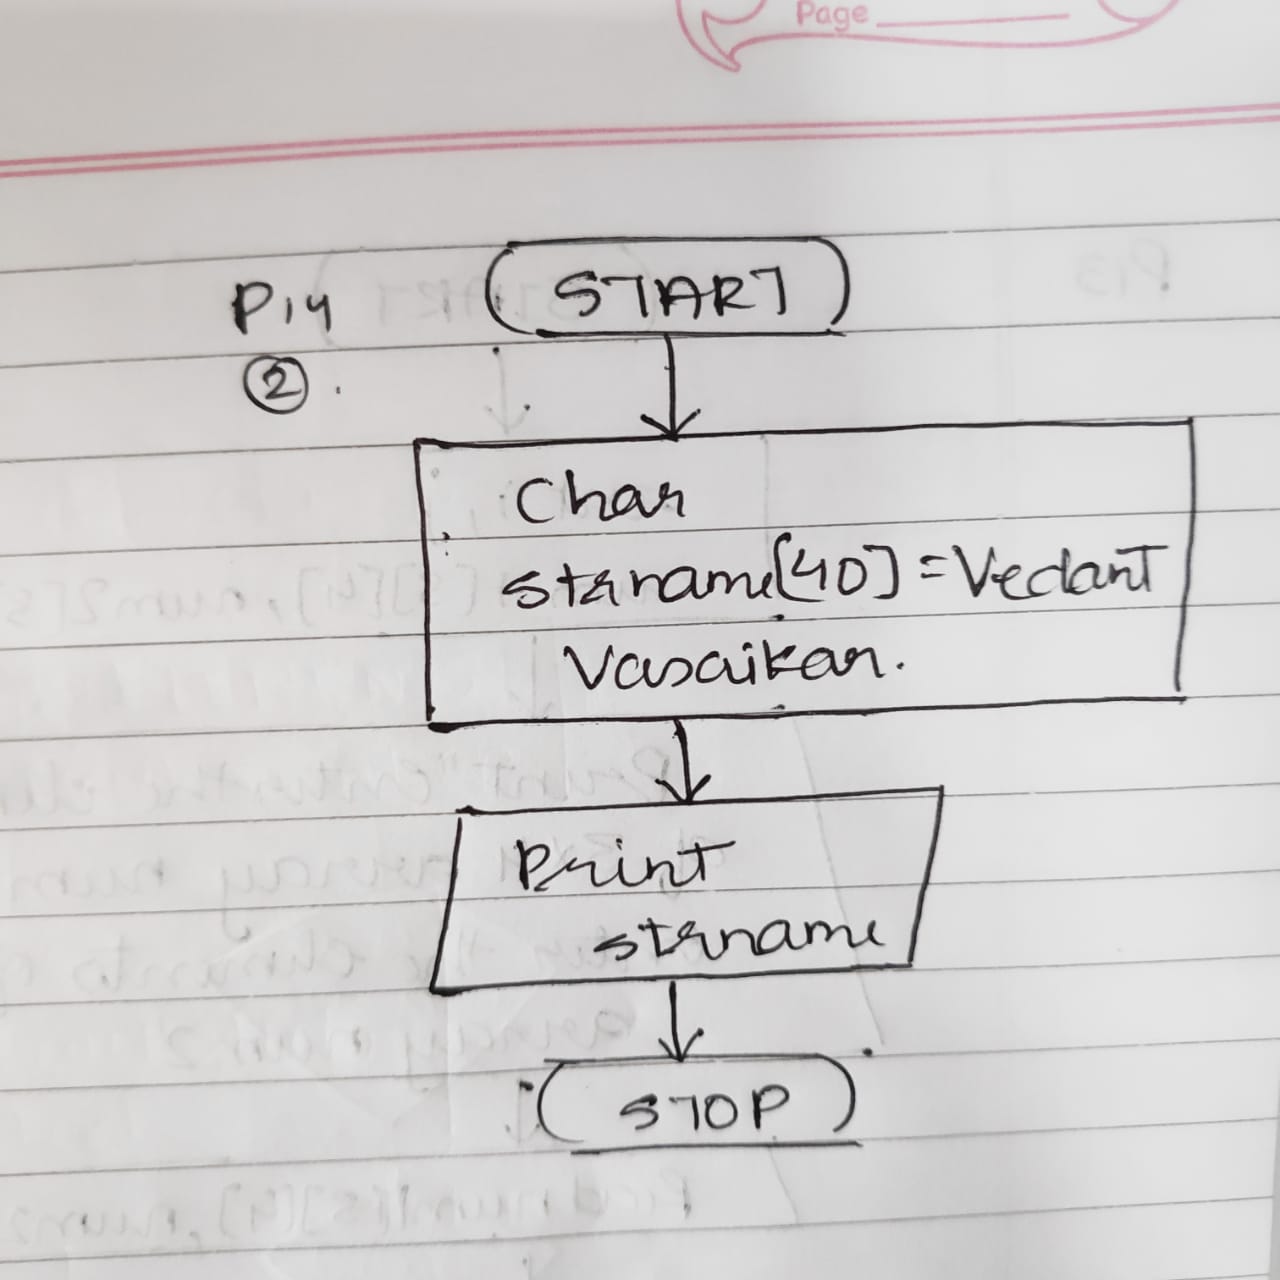 Page
P14
START
2
Char
strname[40] = Vedant
Vasaikar.
Print
strname
STOP